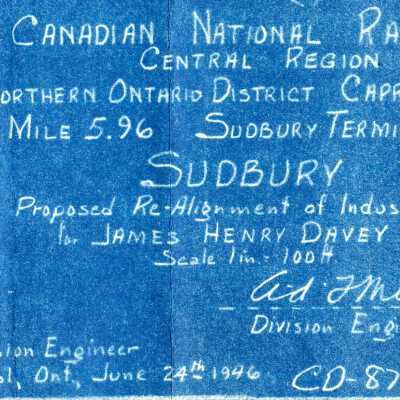 CANADIAN NATIONAL RA
CENTRAL REGION
ORTHERN ONTARIO DISTRICT CAPR
MILE 5.96 SUDBURY TERMI
SUDBURY
Proposed Re-Alignment of Indus
for JAMES HENRY DAVEY
Scale 1in.= 100ft
DIVISION ENGI
ion Engineer
ol, Ont, June 24th 1946
CD-87